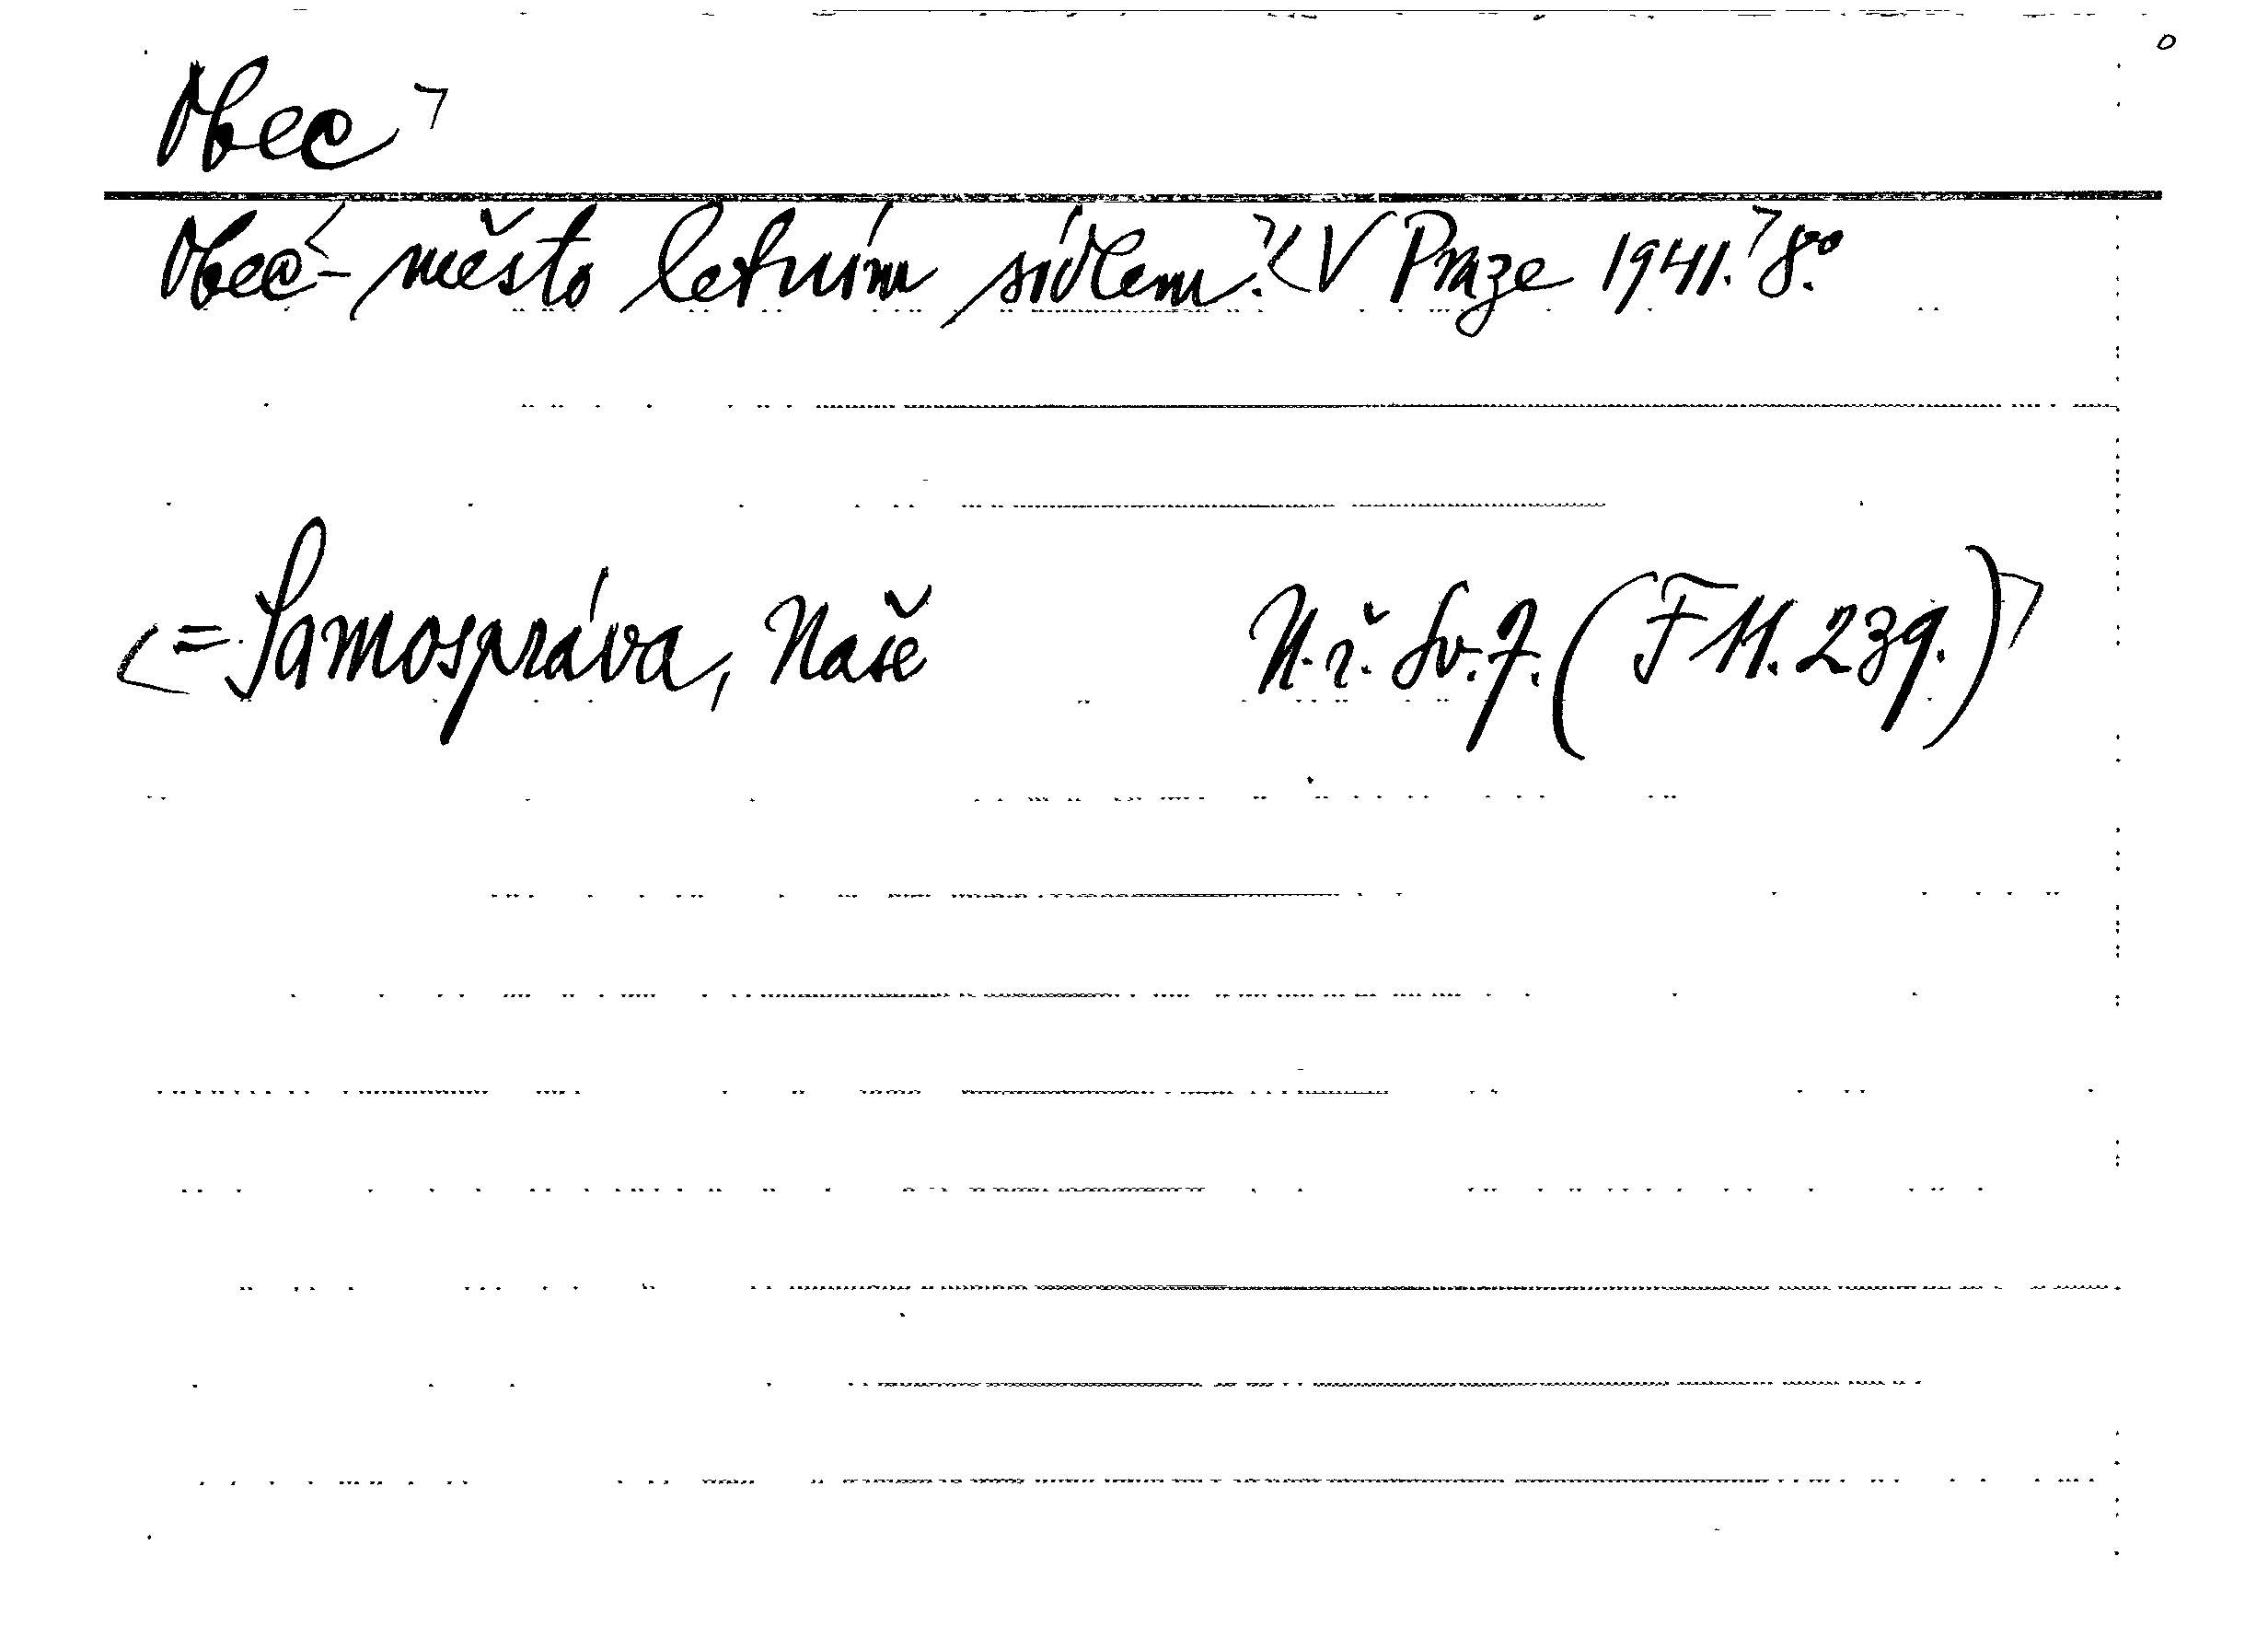 Obec
Obec - město letním sídlem. V Praze 1941. 8°.
= Samospráva, Naše N. ř. Sv. 7. (F 11. 239.)